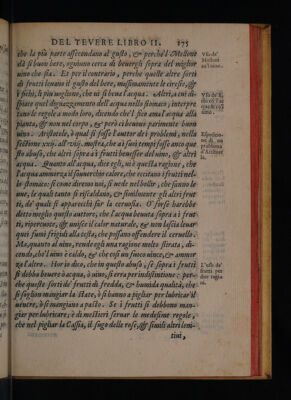 DEL TEVERE LIBRO II. 175
che la più parte ascendano al gusto, & perche'l Mellone
dà sì buon bere, ogniuno cerca di beuergli sopra del miglior
uino che sia. Et per il contrario, perche quelle altre sorti
di frutti leuano il gusto del bere, massimamente le cirese, &
fichi, li più uogliono, che ui si beua l'acqua. Altri, a cui di-
spiace quel
l'acqua nello stomaco, interpre
tano le regole a modo loro, dicendo che'l fico ama l'acqua alla
pianta, & non nel corpo, & però ci beuano parimente buon
uino. Aristotele, ò qual si fosse l'autor de i problemi, nella
settione xxij. all'viij. mostra, che a i suoi tempi fosse anco que
sto abuso, che altri sopra a i frutti beuesse del uino, & altri
acqua. Quanto all'acqua, dice egli, ui è questa ragione, che
l'acqua ammorza il souerchio calore, che eccitano i frutti nel-
lo stomaco: si come
ti, de' quali si
detto meglio questo auttore, che l'acqua beuuta sopra a i frut
ti, ripercuote, & unisce il calor naturale, & non lascia leuar
quei fumi frigidi alla testa, che possano offendere il ceruello.
Ma, quanto al uino, rende egli una ragione molto stirata, di-
cendo, che'l uino è caldo, & che esso un fuoco uince, & ammor
za l'altro. Hor io dico, che in questo abuso, se sopra i frutti
si debba beuere ò acqua, ò uino, si erra per indistintione: per-
che queste sorti de' frutti di fredda, & humida qualità, che
si sogliono mangiar la state, ò si hanno a pigliar per lubricar il
uentre, ò si mangiano a pasto. Se i frutti si debbono man-
giar per lubricare; è di mestieri seruar le medesime regole,
che nel pigliar la Cassia, il sugo delle rose, & simili altri leni-
tiui,
Vso de'
Melloni
col uino.
Vso de'
fichi
uino.
di un
problema
d'Aristote
le.
L'uso de'
frutti per
due ragio
ni.